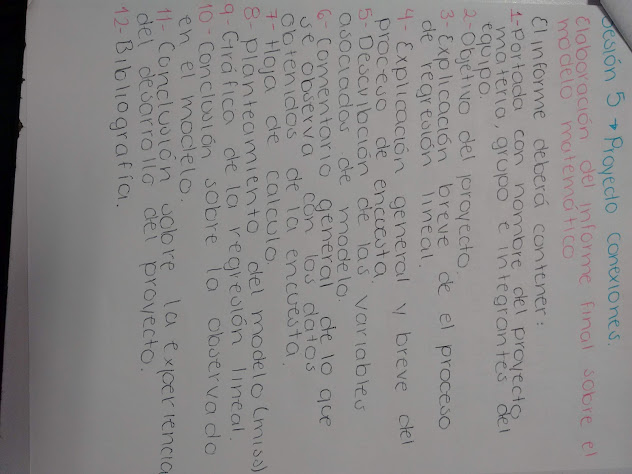 Sesión 5 → Proyecto conexiones.
Elaboración del informe final sobre el
modelo matemático
El informe deberá contener:
1- portada con nombre del proyecto
materia, grupo e integrantes del
equipo.
2- Objetivo del proyecto.
3- Explicación breve de el proceso
de regresión lineal.
4- Explicación general y breve del
proceso de encuesta.
5- Descripción de las variables
asociadas de modelo.
6- Comentario general de lo que
se observa con los datos
obtenidos de la encuesta.
7- Hoja de calculo.
8- planteamiento del modelo (miss)
9- Gráfica de la regresión lineal.
10- Conclusión sobre lo observado
en el modelo.
11- Conclusión sobre la experiencia
del desarrollo del proyecto.
12- Bibliografía.